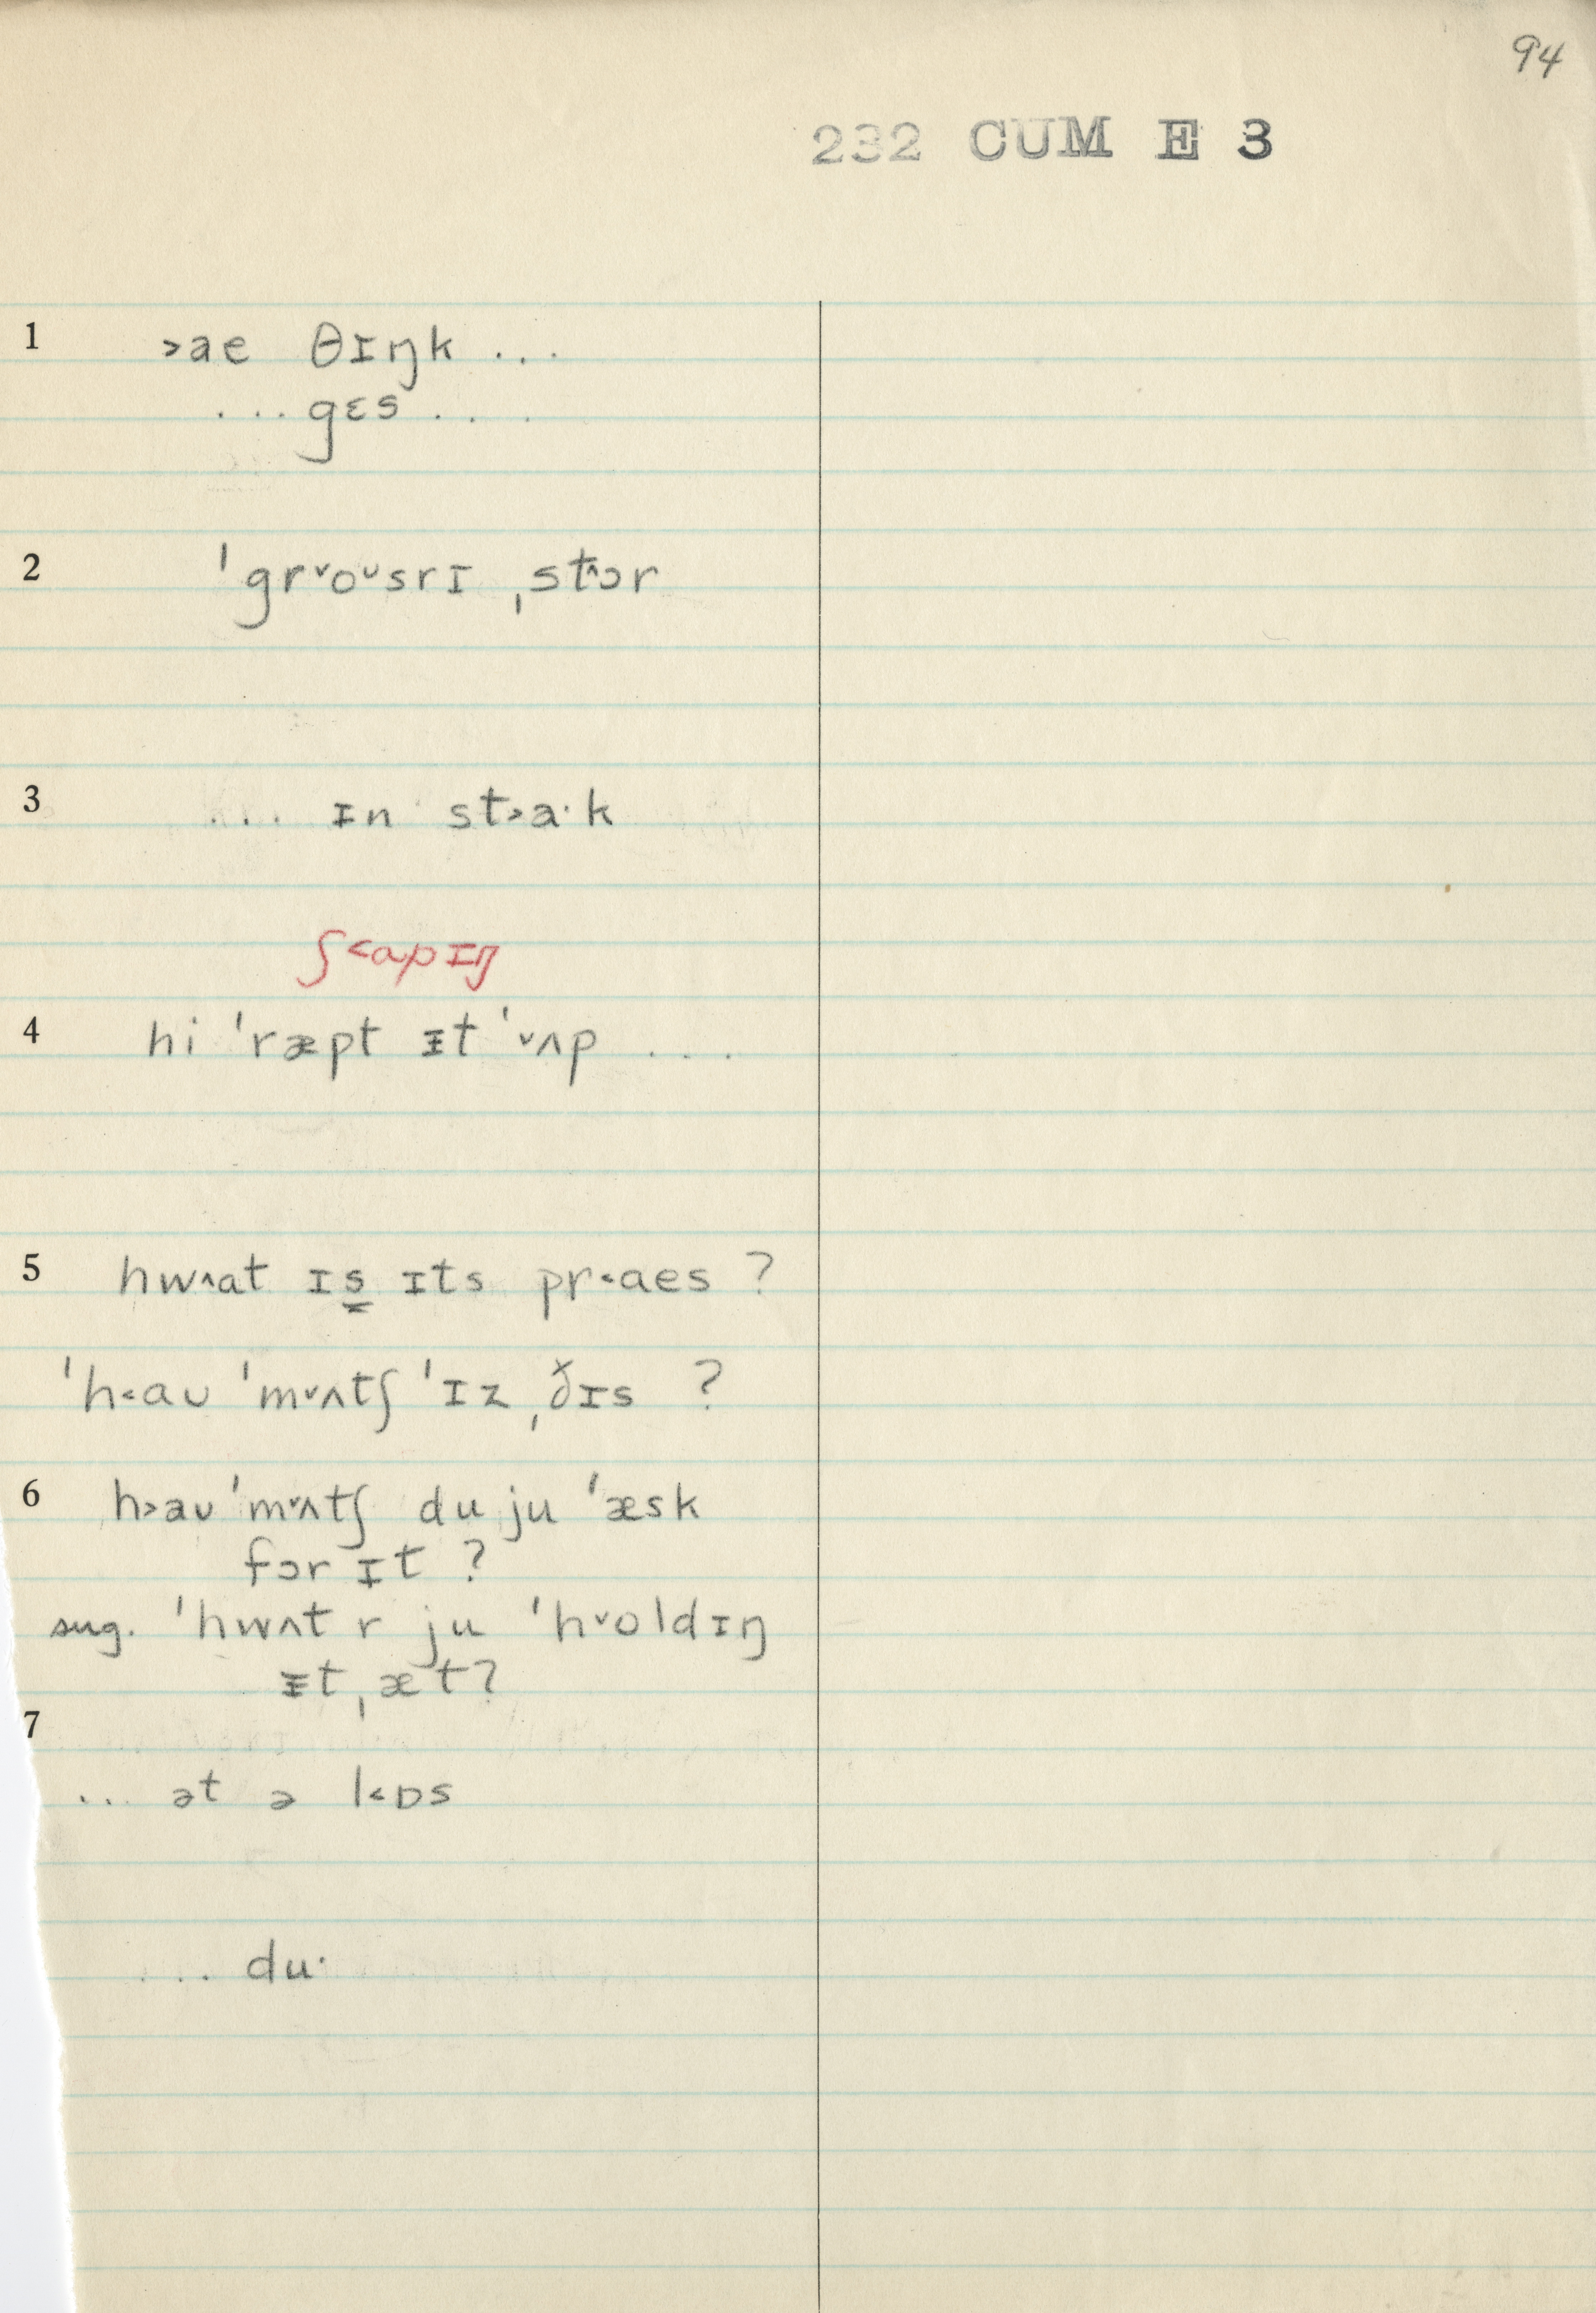 94
232 CUM E 3
1 ˃ae θɪŋk ...
... gɛs ...
2 ˈgr˅oᴜsrɪ ˌst˄ɔr
3 ... ɪn st˃a·k
ʃ˂apɪŋ
4 hi ˈræpt ᵻt ˈ˅ʌp ...
5 hw˄at ɪs̬ ɪts pr˂aes ?
ˈh˂aᴜ ˈm˅ʌtʃ ˈɪz ˌðɪs ?
6 h˃aᴜ ˈm˅ʌtʃ du ju ˈæsk
fɔr ɪt ?
sug. ˈhwʌt r ju ˈh˅oldɪŋ
ᵻt ˌæt?
7
... ət ə l˂ɒs
... du·